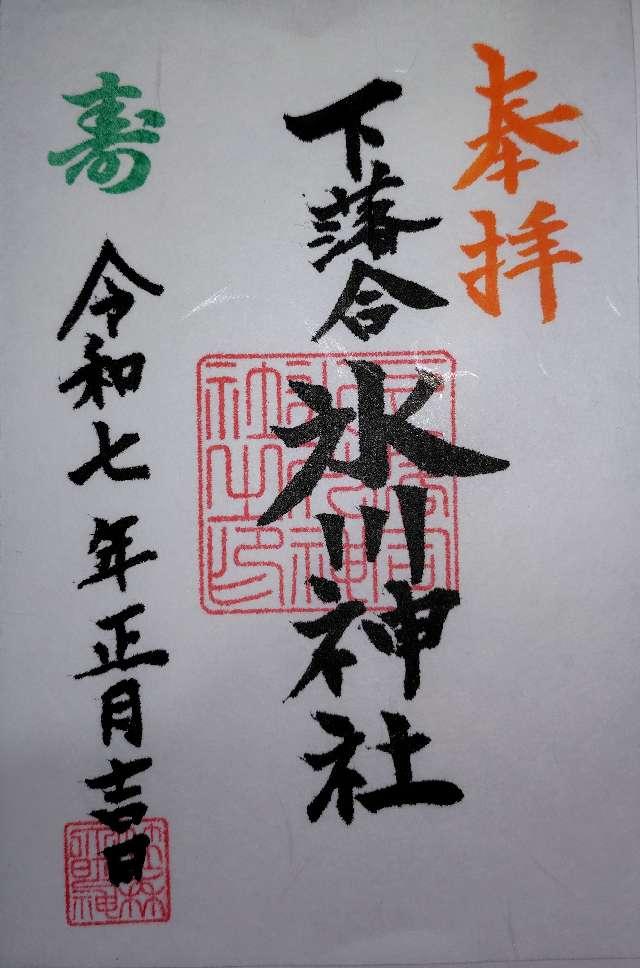 奉拝
下落合氷川神社
寿
令和七年正月吉日